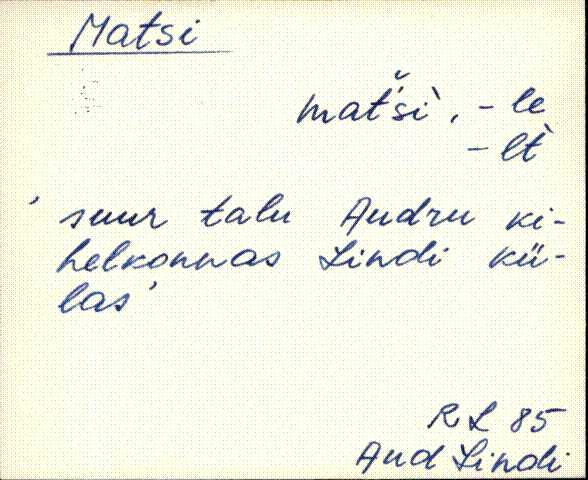 Matsi
mat̕šì, -le
-lt̀
' suur talu Audru ki-
helkonnas Lindi kü-
las'
RL 85
Aud Lindi